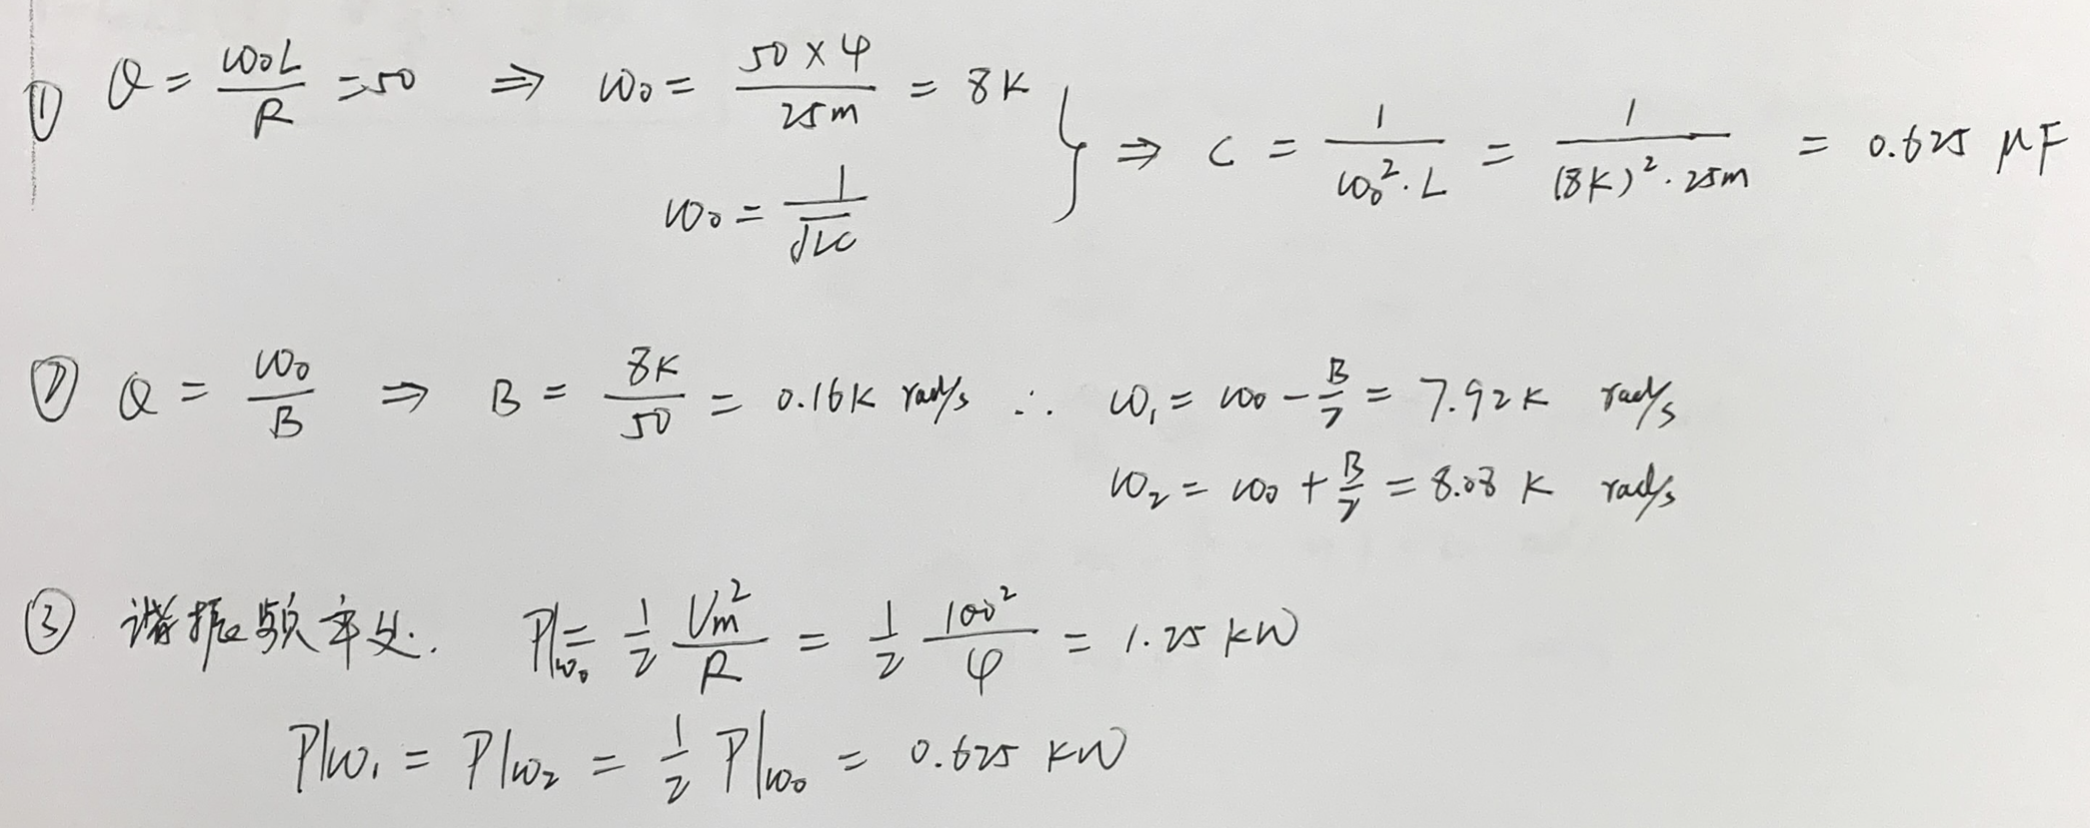 ① Q = ω₀L/R = 50 ⇒ ω₀ = 50×4/25m = 8K
ω₀ = 1/√LC } ⇒ C = 1/ω₀²·L = 1/(8K)²·25m = 0.625 μF
② Q = ω₀/B ⇒ B = 8K/50 = 0.16K rad/s ∴ ω₁ = ω₀ - B/2 = 7.92K rad/s
ω₂ = ω₀ + B/2 = 8.08 K rad/s
③ 谐振频率处. P|ω₀ = 1/2 Vm²/R = 1/2 100²/4 = 1.25 KW
P|ω₁ = P|ω₂ = 1/2 P|ω₀ = 0.625 KW